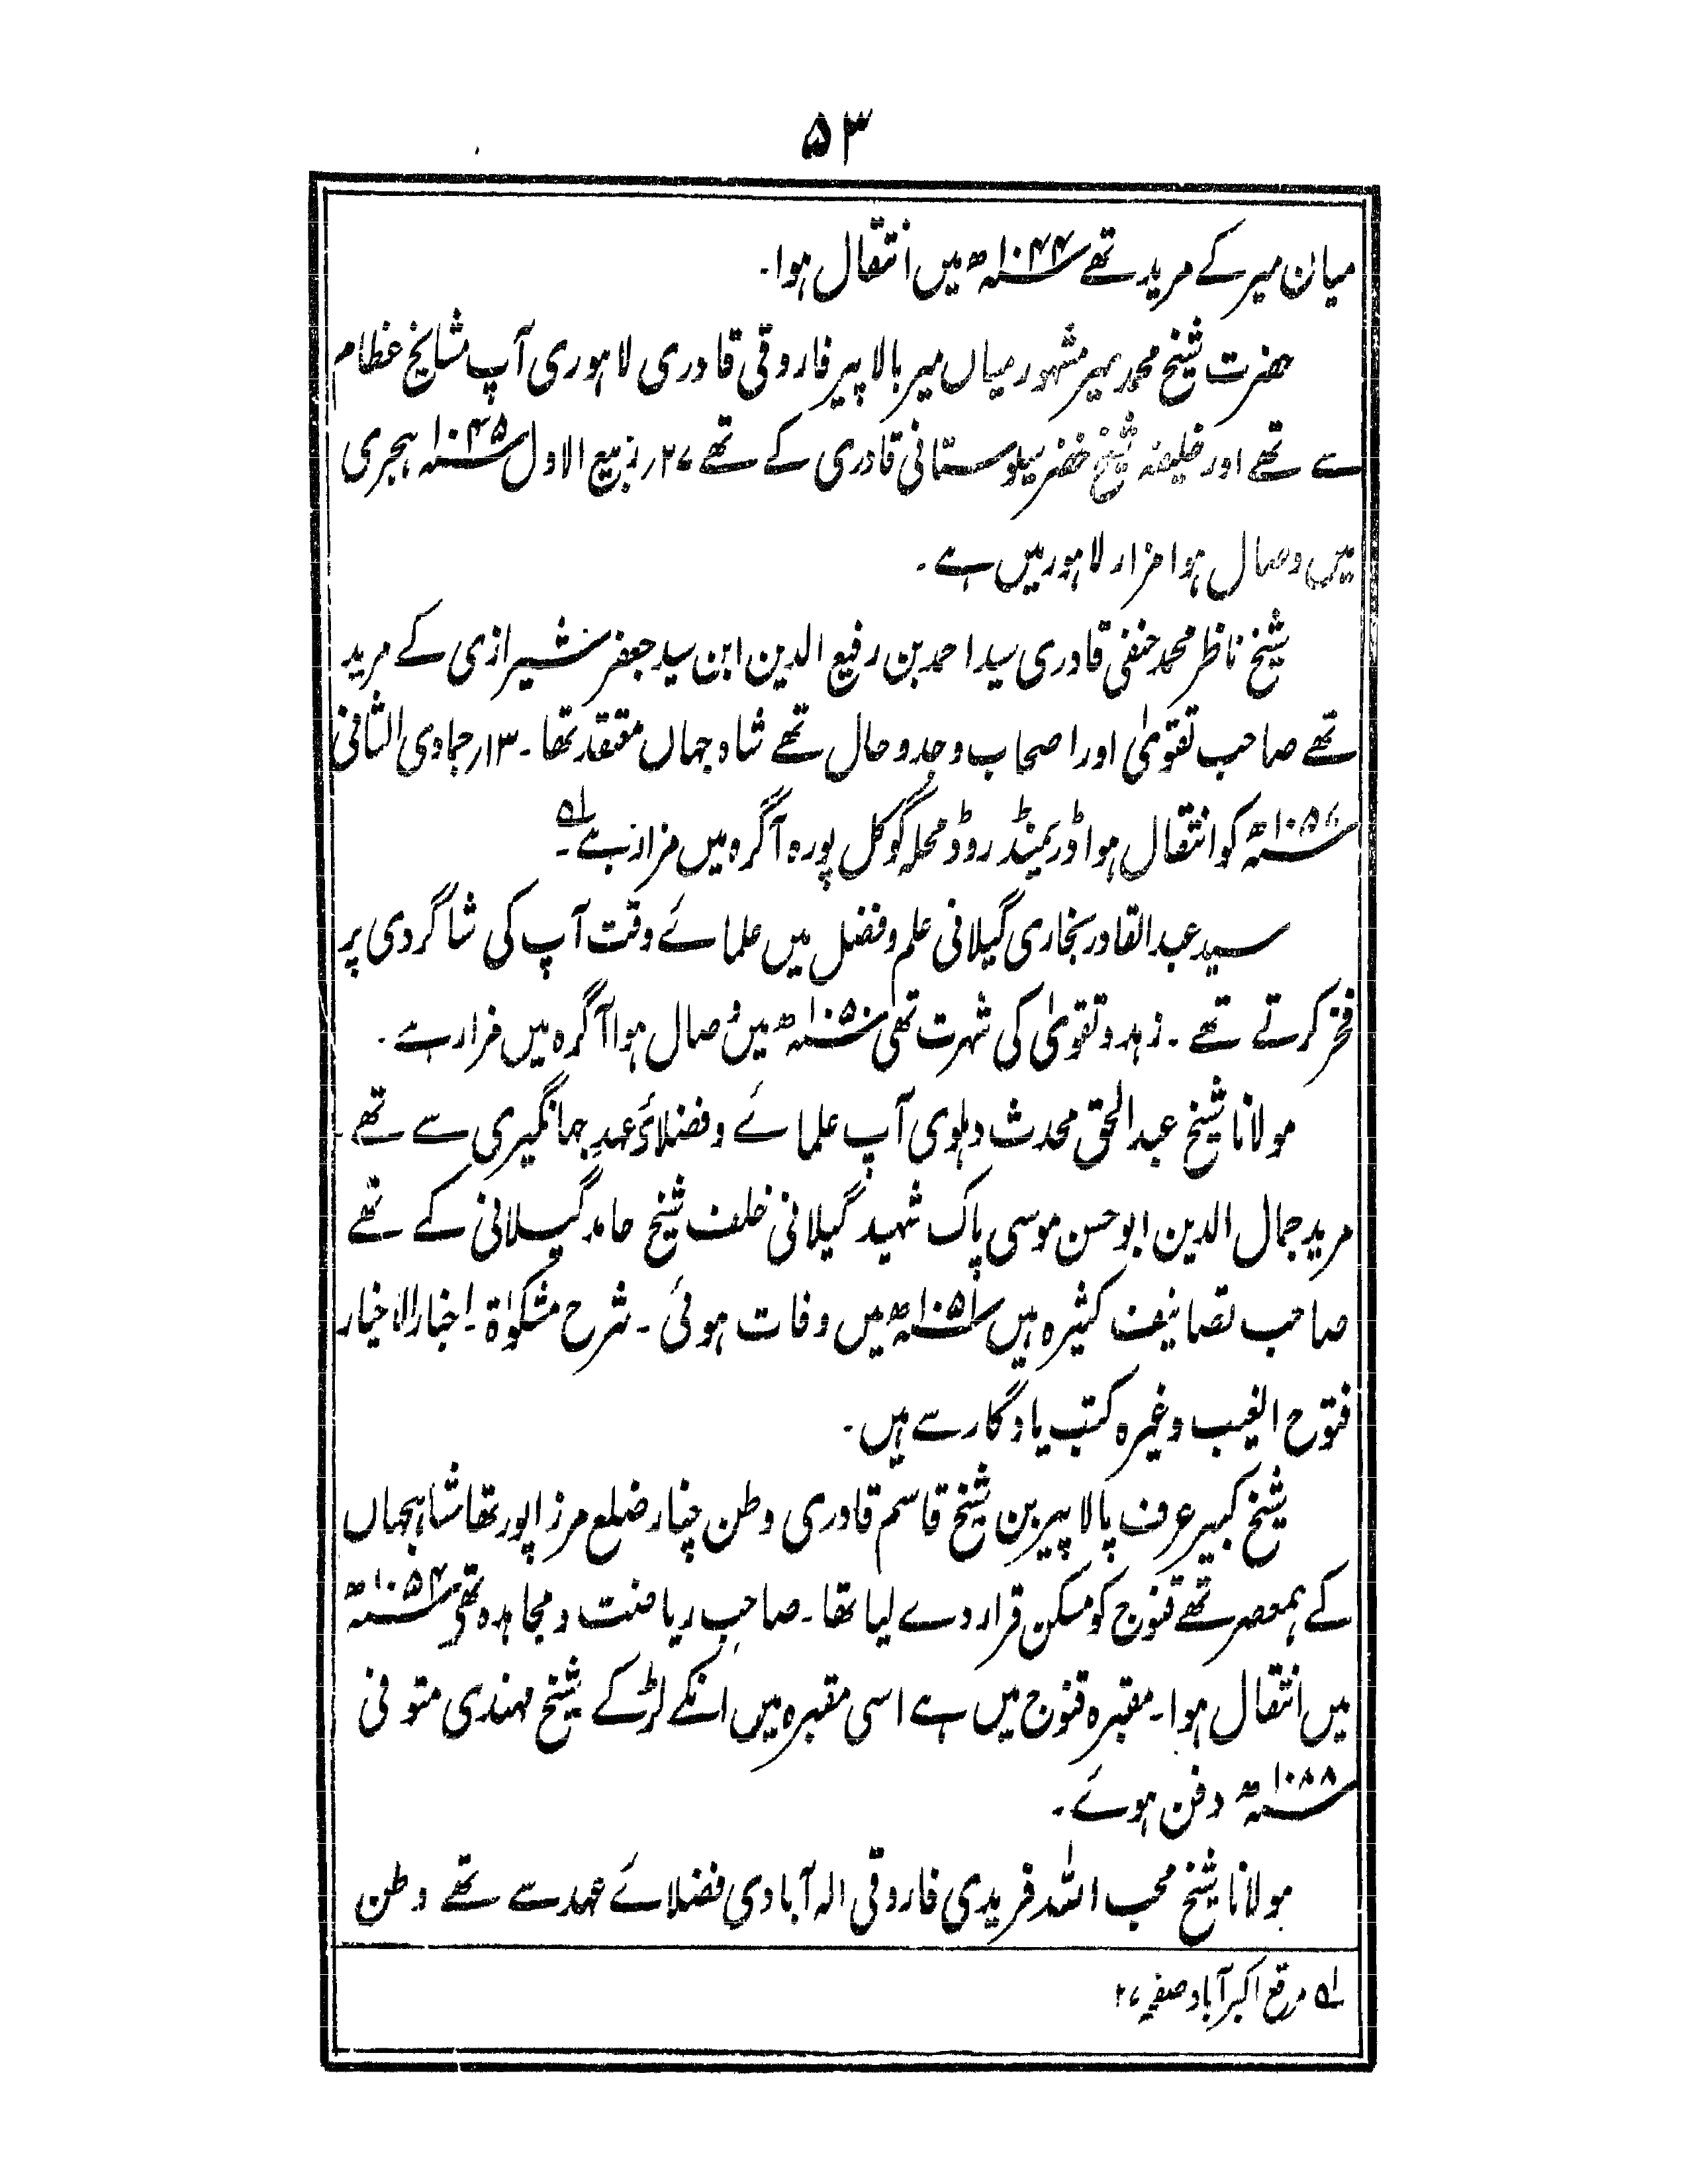 ۵۳
میان میر کے مرید تھے ۱۰۴۴ھ میں انتقال ہوا۔
حضرت شیخ محمد میر مشہور میاں میر بالا پیر فاروقی قادری لاہوری آپ مشایخ عظام
سے تھے اور خلیفہ شیخ خضر سیلوستانی قادری کے تھے ۲۷ ربیع الاول ۱۰۴۵ھ ہجری
میں وصال ہوا مزار لاہور میں ہے۔
شیخ ناظر محمد حنفی قادری سید احمد بن رفیع الدین ابن سید جعفر شیرازی کے مرید
تھے صاحب تقویٰ اور اصحاب وجد و حال تھے شاہ جہاں معتقد تھا۔ ۱۳ر جمادی الثانی
۱۰۵۷ھ کو انتقال ہوا ڈریمنڈ روڈ محلہ گوکل پورہ آگرہ میں مزار ہے۔ ۱ھ
سید عبد القادر بخاری گیلانی علم و فضل میں علمائے وقت آپ کی شاگردی پر
فخر کرتے تھے۔ زہد و تقویٰ کی شہرت تھی ۱۰۵۰ھ میں وصال ہوا آگرہ میں مزار ہے۔
مولانا شیخ عبد الحق محدث دہلوی آپ علمائے و فضلائے عہد جہانگیری سے تھے۔
مرید جمال الدین ابو حسن موسی پاک شہید گیلانی خلف شیخ حامد گیلانی کے تھے
صاحب تصانیف کثیرہ ہیں ۱۰۵۱ھ میں وفات ہوئی۔ شرح مشکوٰۃ۔ اخبار الاخیار
فتوح الغیب وغیرہ کتب یادگار سے ہیں۔
شیخ کبیر عرف پالا پیر بن شیخ قاسم قادری وطن چنار ضلع مرزا پور تھا شاہجہاں
کے ہمعصر تھے قنوج کو مسکن قرار دے لیا تھا۔ صاحب ریاضت و مجاہدہ تھے ۱۰۵۴ھ
میں انتقال ہوا۔ مقبرہ قنوج میں ہے اسی مقبرہ میں انکے لڑکے شیخ مہندی متوفی
۱۰۸۸ھ دفن ہوئے۔
مولانا شیخ محب اللہ فریدی فاروقی الہ آبادی فضلائے عہد سے تھے وطن
۱ھ مرقع اکبرآباد صفحہ ۲۷